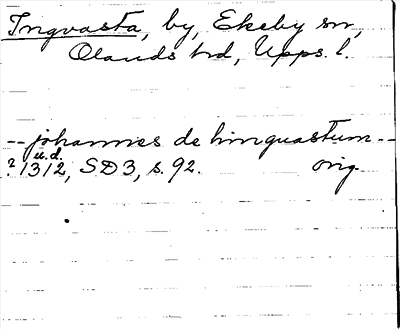 Ingvasta, by, Ekeby sn,
Olands hd, Upps. l.
-- johannes de hinguastum --
u.d.
? 1312, SD3, s. 92. orig.